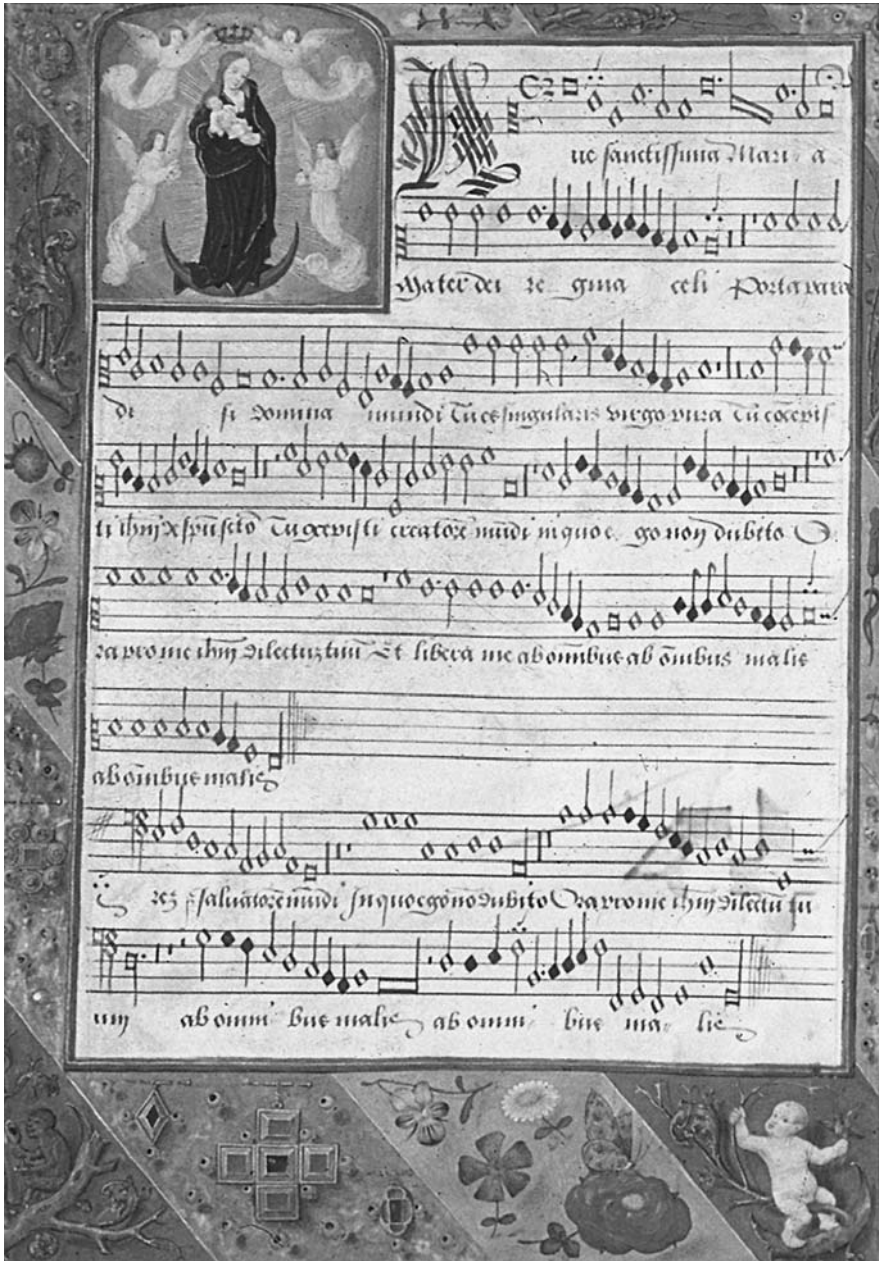 Aue sanctissima Mari a
Mater dei re gina celi Porta para
di si domina mundi Tu es singularis virgo pura Tu cõcepis
ti ihũ spũ scõ Tu peperisti creatorẽ mũdi in quo e go non dubito O
ra pro me ihũ dilectuz tuũ Et libera me ab omnibus ab õnibus malis
ab õnibus malis
rez saluatorẽ mũdi In quo ego nõ dubito Ora pro me ihũ dilectũ tu
um ab omni bus malis ab omni bus ma lis